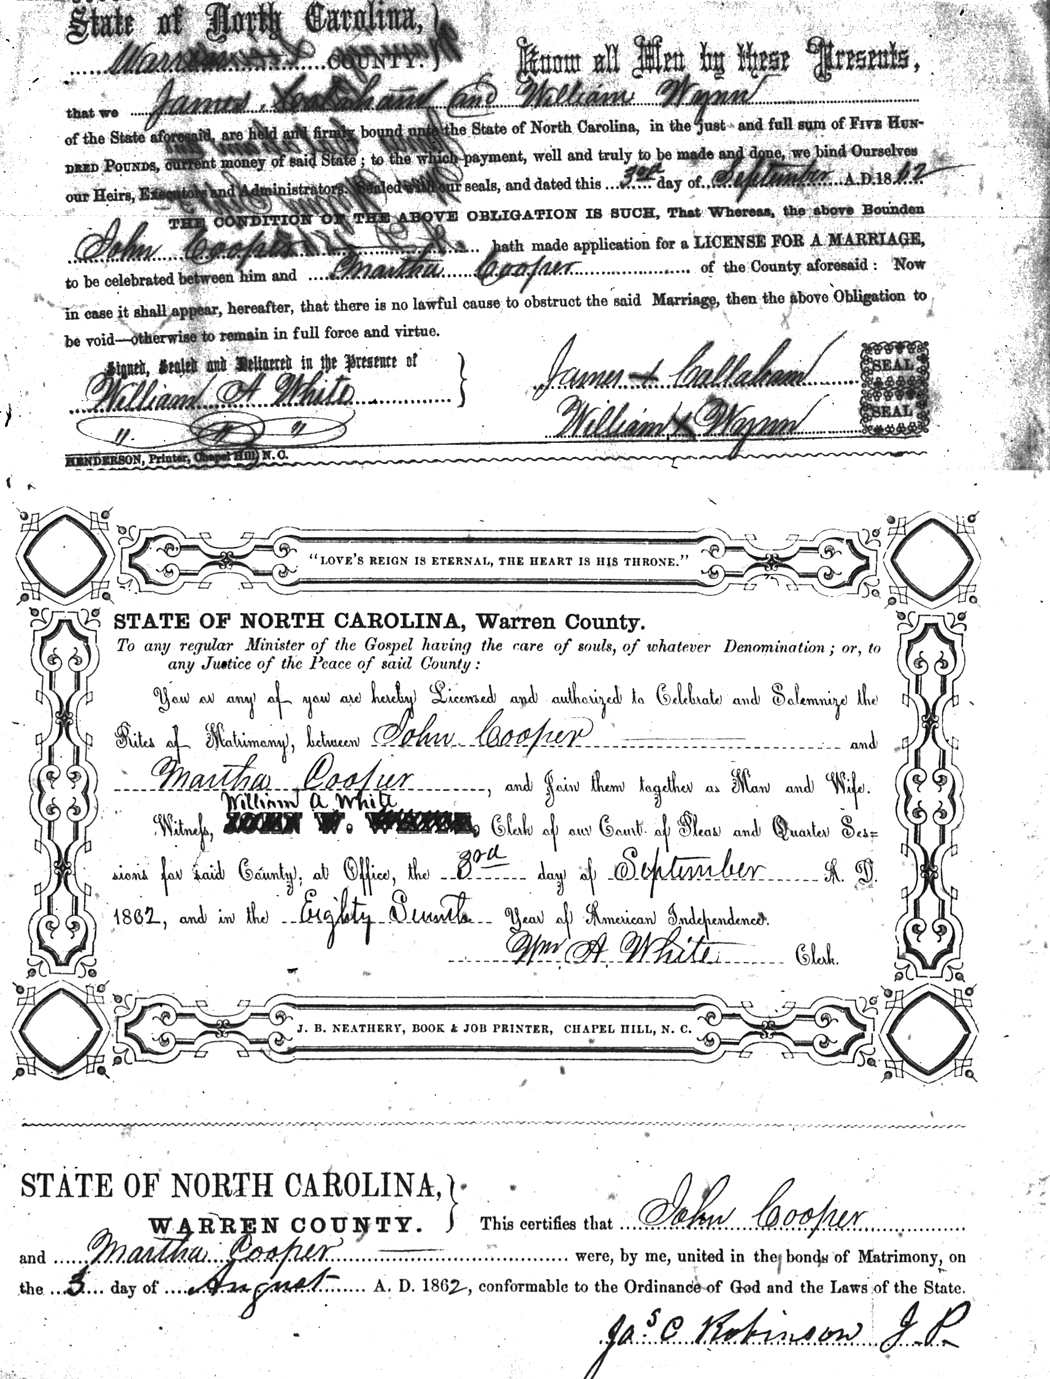 State of North Carolina,
Warren COUNTY.
Know all Men by these Presents,
that we James Callaham and William Wynn
of the State aforesaid, are held and firmly bound unto the State of North Carolina, in the just and full sum of FIVE HUN-
DRED POUNDS, current money of said State; to the which payment, well and truly to be made and done, we bind Ourselves
our Heirs, Executors and Administrators. Sealed with our seals, and dated this 3rd day of September A.D. 1862
THE CONDITION OF THE ABOVE OBLIGATION IS SUCH, That Whereas, the above Bounden
John Cooper hath made application for a LICENSE FOR A MARRIAGE,
to be celebrated between him and Martha Cooper of the County aforesaid: Now
in case it shall appear, hereafter, that there is no lawful cause to obstruct the said Marriage, then the above Obligation to
be void—otherwise to remain in full force and virtue.
Signed, Sealed and Delivered in the Presence of
William A White
" " "
James + Callaham SEAL
William x Wynn SEAL
HENDERSON, Printer, Chapel Hill, N. C.
"LOVE'S REIGN IS ETERNAL, THE HEART IS HIS THRONE."
STATE OF NORTH CAROLINA, Warren County.
To any regular Minister of the Gospel having the care of souls, of whatever Denomination; or, to
any Justice of the Peace of said County:
You or any of you are hereby Licensed and authorized to Celebrate and Solemnize the
Rites of Matrimony, between John Cooper and
Martha Cooper, and Join them together as Man and Wife.
William A White
Witness, Clerk of our Court of Pleas and Quarter Ses=
sions for said County, at Office, the 3rd day of September A. D.
1862, and in the Eighty Year of American Independence.
Wm A. White Clerk.
J. B. NEATHERY, BOOK & JOB PRINTER, CHAPEL HILL, N. C.
STATE OF NORTH CAROLINA,
WARREN COUNTY.
This certifies that John Cooper
and Martha Cooper were, by me, united in the bonds of Matrimony, on
the 3 day of August A. D. 1862, conformable to the Ordinance of God and the Laws of the State.
Jas C Robinson J. P.